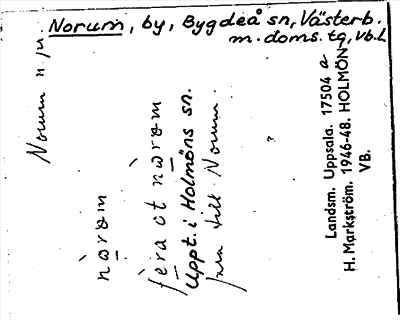 Norum, by, Bygdeå sn, Västerb.
m. doms. tg, Vb.l.
Norum n. pr.
nàrom
fèra ot nàrom
Uppt. i Holmöns sn.
fara till Norum.
Landsm. Uppsala. 17504 a
H. Markström. 1946-48. HOLMÖN
VB.